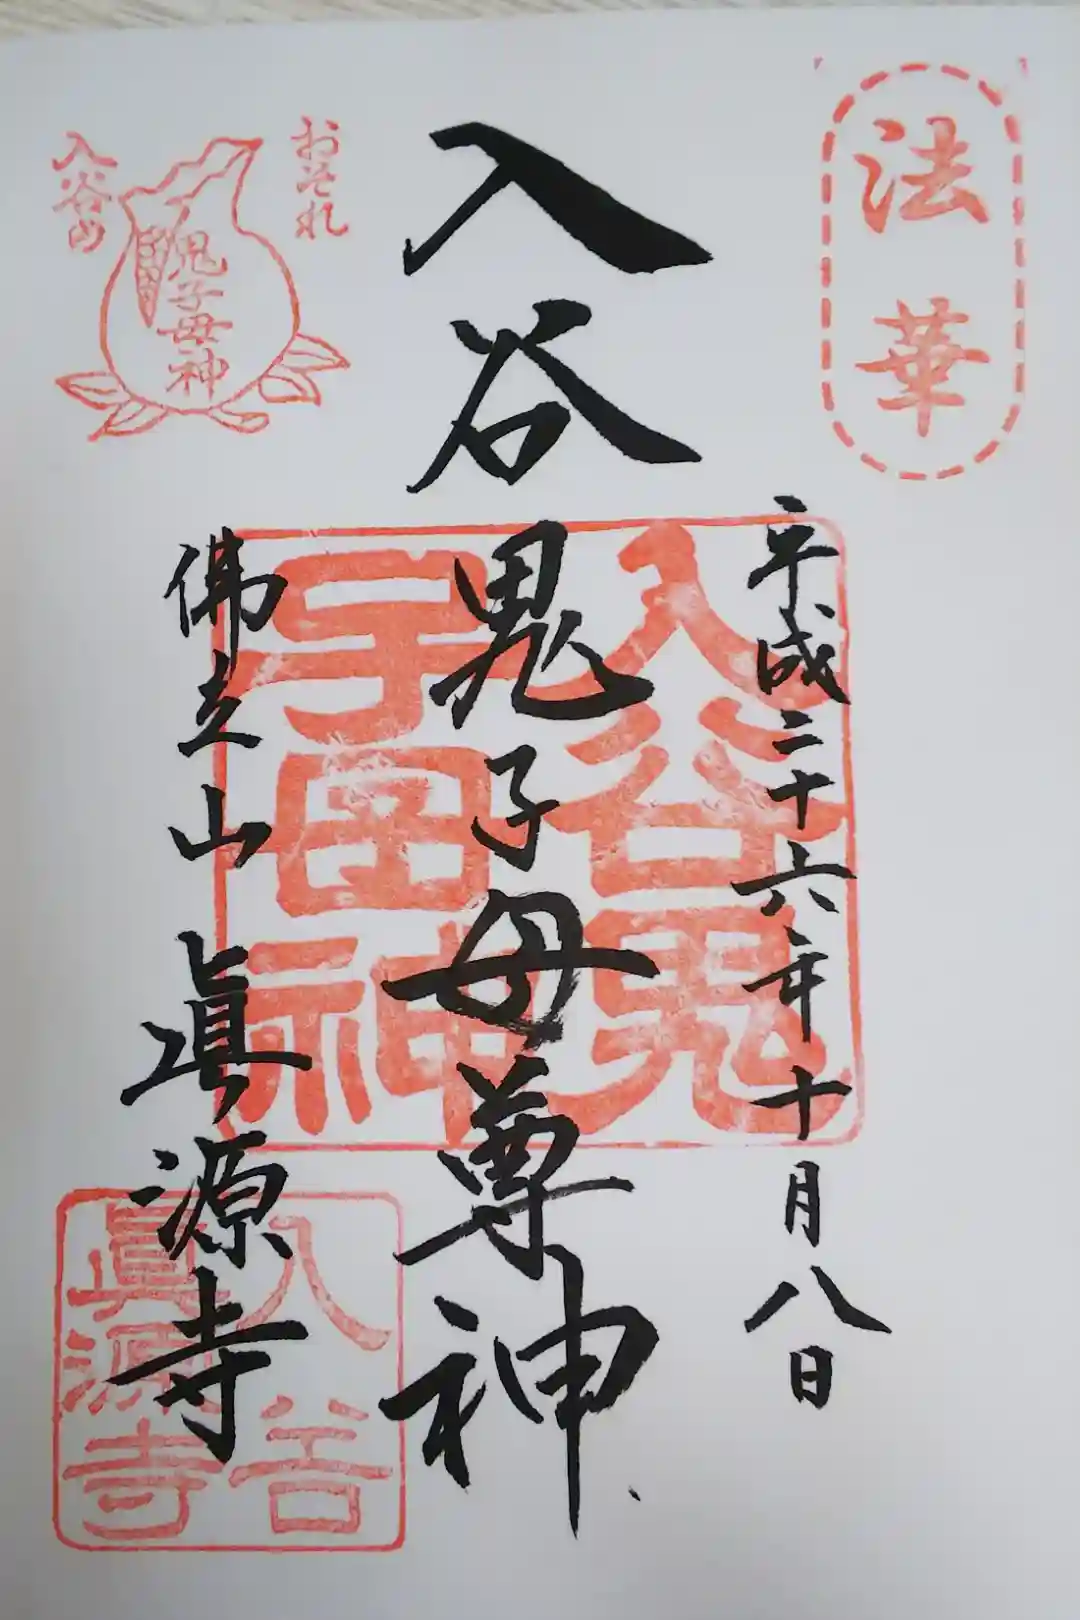 法華
平成二十六年十月八日
入谷鬼子母尊神
入谷鬼
子母神
おそれ
入谷の
鬼子母神
佛立山 眞源寺
入谷
眞源寺